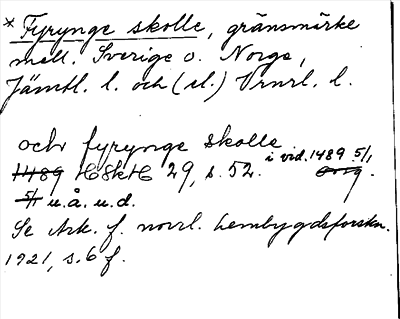 * Fyrynge skolle, gränsmärke
mell. Sverige o. Norge,
Jämtl. l. och (el.) Vrnrl. l.
ochr fyrynge skolle
1489 HSkH 29, s. 52. i vid. 1489 5/1 orig.
5/1 u.å. u.d.
Se Ark. f. norrl. hembygdsforskn.
1921, s. 6 f.